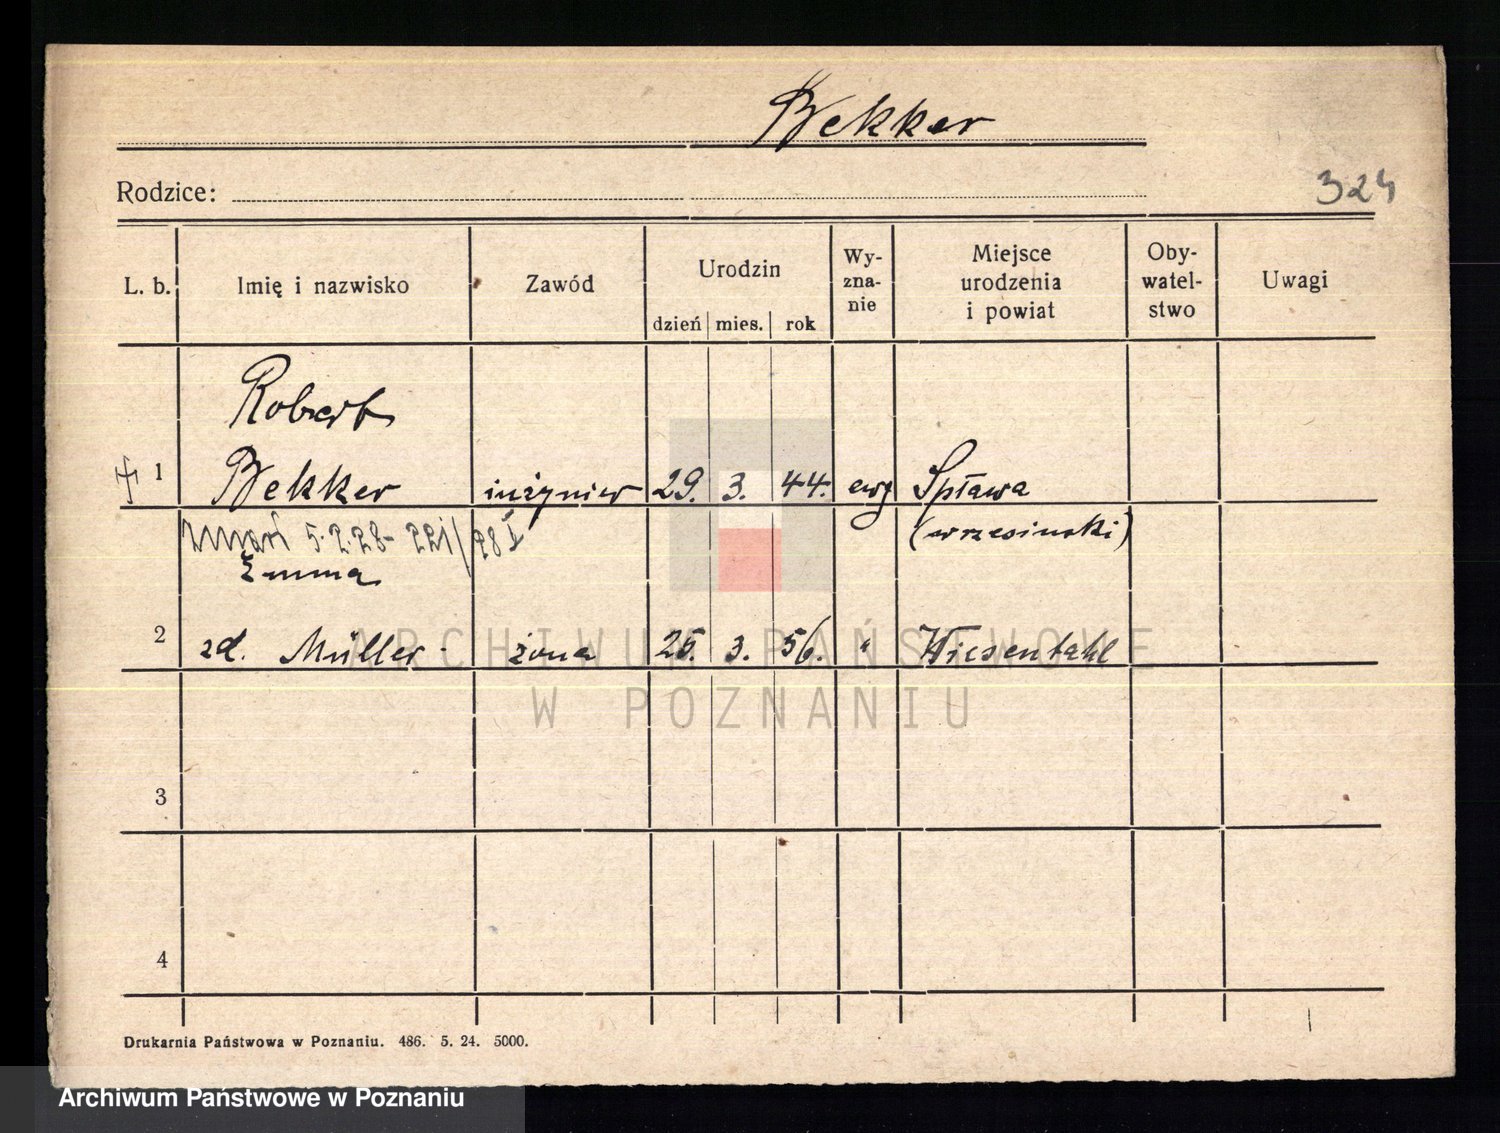 Bekker
Rodzice:
324
L. b. Imię i nazwisko Zawód Urodzin Wy-zna-nie Miejsce urodzenia i powiat Oby-watel-stwo Uwagi
dzień mies. rok
Robert
1 Bekker inżynier 29. 3. 44. ewg Spława
(wrzesiński)
zmarł 5.2.28 - 221/28 I
Emma
2 zd. Müller - żona 25. 3. 56. " Wiesentahl
3
4
ARCHIWUM PAŃSTWOWE
W POZNANIU
Drukarnia Państwowa w Poznaniu. 486. 5. 24. 5000.
Archiwum Państwowe w Poznaniu